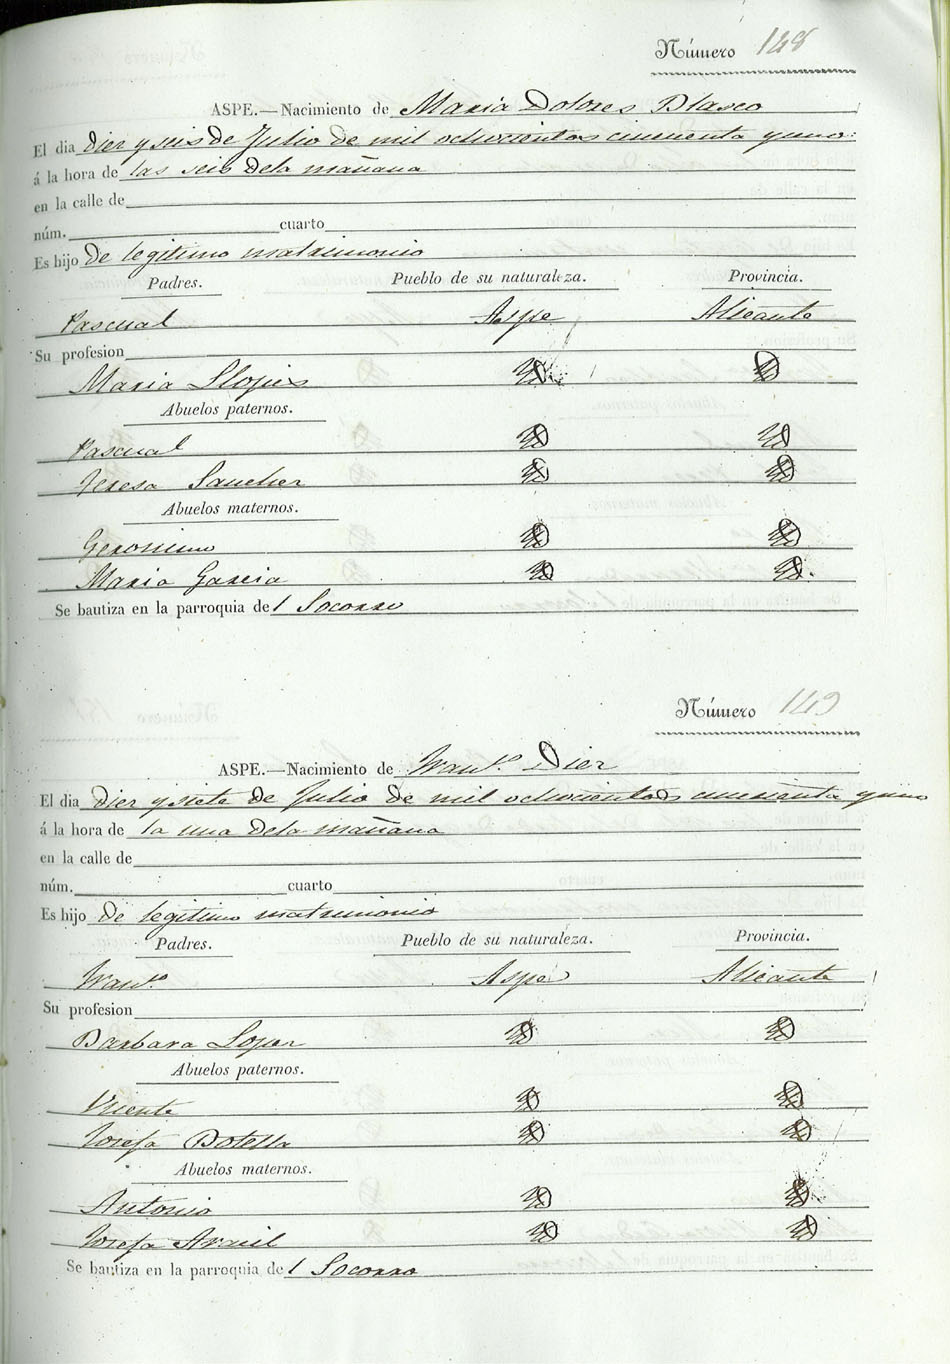 Número 148
ASPE.—Nacimiento de Maria Dolores Blasco
El dia diez y seis de Julio de mil ochocientos cincuenta y uno
á la hora de las seis dela mañana
en la calle de
núm. cuarto
Es hijo de legitimo matrimonio
Padres. Pueblo de su naturaleza. Provincia.
Pascual Aspe Alicante
Su profesion
Maria Llopis
Abuelos paternos.
Pascual
Teresa Sanchez
Abuelos maternos.
Geronimo
Maria Garcia
Se bautiza en la parroquia del Socorro
Número 149
ASPE.—Nacimiento de Franco. Diez
El dia diez y siete de Julio de mil ochocientos cincuenta y uno
á la hora de la una dela mañana
en la calle de
núm. cuarto
Es hijo de legitimo matrimonio
Padres. Pueblo de su naturaleza. Provincia.
Franco. Aspe Alicante
Su profesion
Barbara Lopez
Abuelos paternos.
Vicente
Josefa Botella
Abuelos maternos.
Antonio
Josefa
Se bautiza en la parroquia del Socorro